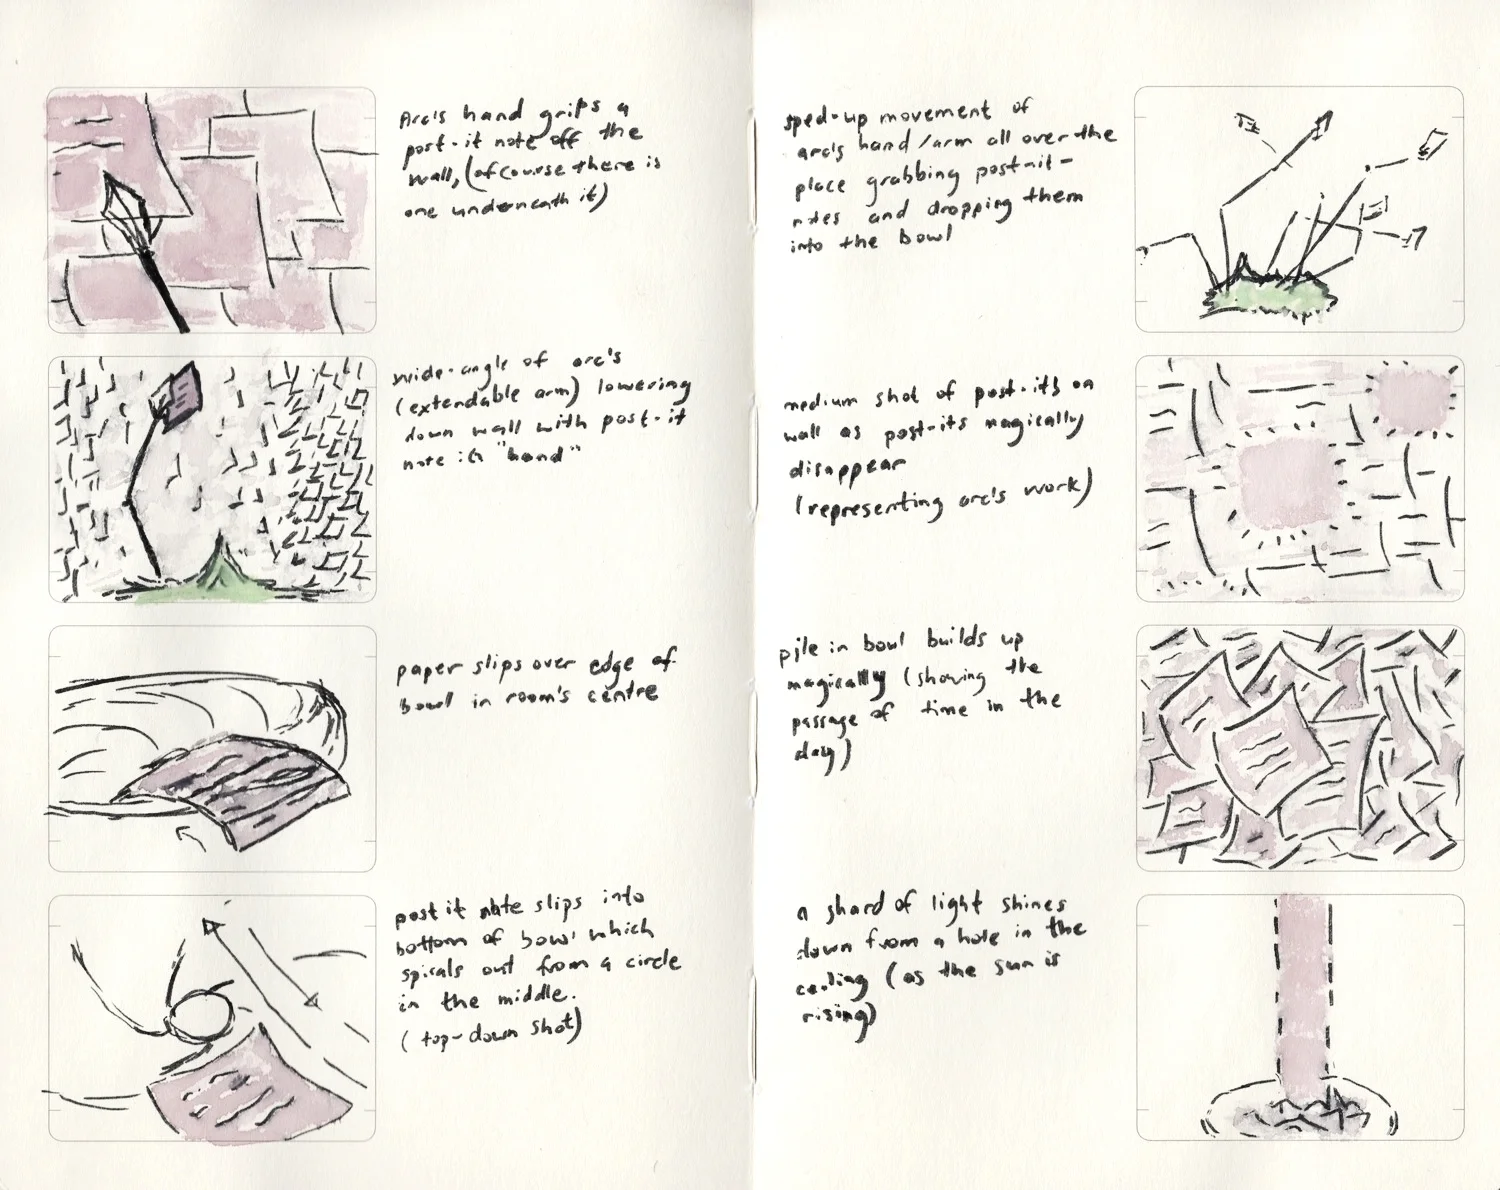 Arc's hand grips a
post-it note off the
wall, (ofcourse there is
one underneath it)
wide-angle of arc's
(extendable arm) lowering
down wall with post-it
note in "hand"
paper slips over edge of
bowl in room's centre
post it note slips into
bottom of bowl which
spirals out from a circle
in the middle.
(top-down shot)
sped-up movement of
arc's hand/arm all over the
place grabbing post-nit-
notes and dropping them
into the bowl
medium shot of post-its on
wall as post-its magically
disappear
(representing arc's work)
pile in bowl builds up
magically (showing the
passage of time in the
day)
a shard of light shines
down from a hole in the
ceiling (as the sun is
rising)